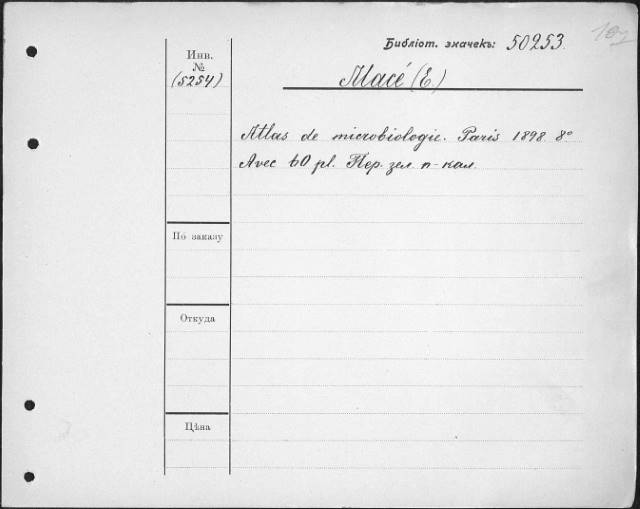 Библіот. значекъ: 50253.
Инв.
№
(5254)
Macé (E.)
Atlas de microbiologie. Paris 1898. 8°
Avec 60 pl. Пер. зел. п-кал.
По заказу
Откуда
Цѣна